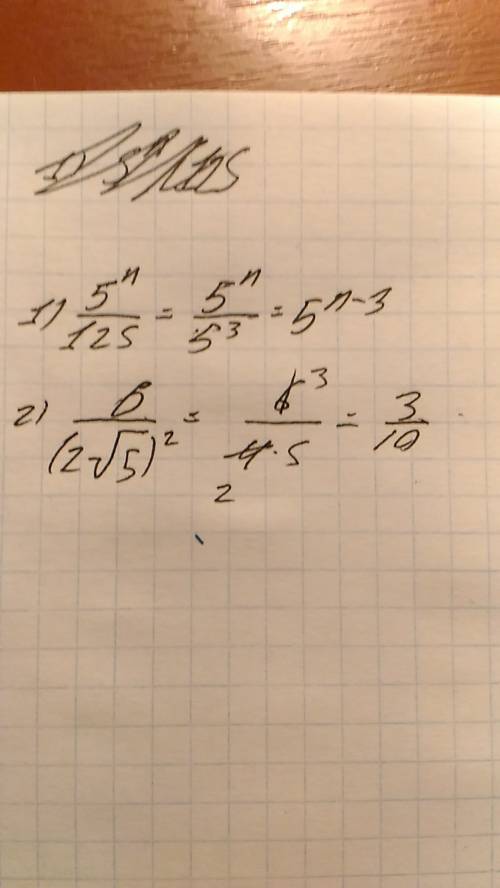 1) 5^n/125 = 5^n/5^3 = 5^(n-3)
2) 6/(2√5)^2 = 6 3/4·5 2 = 3/10